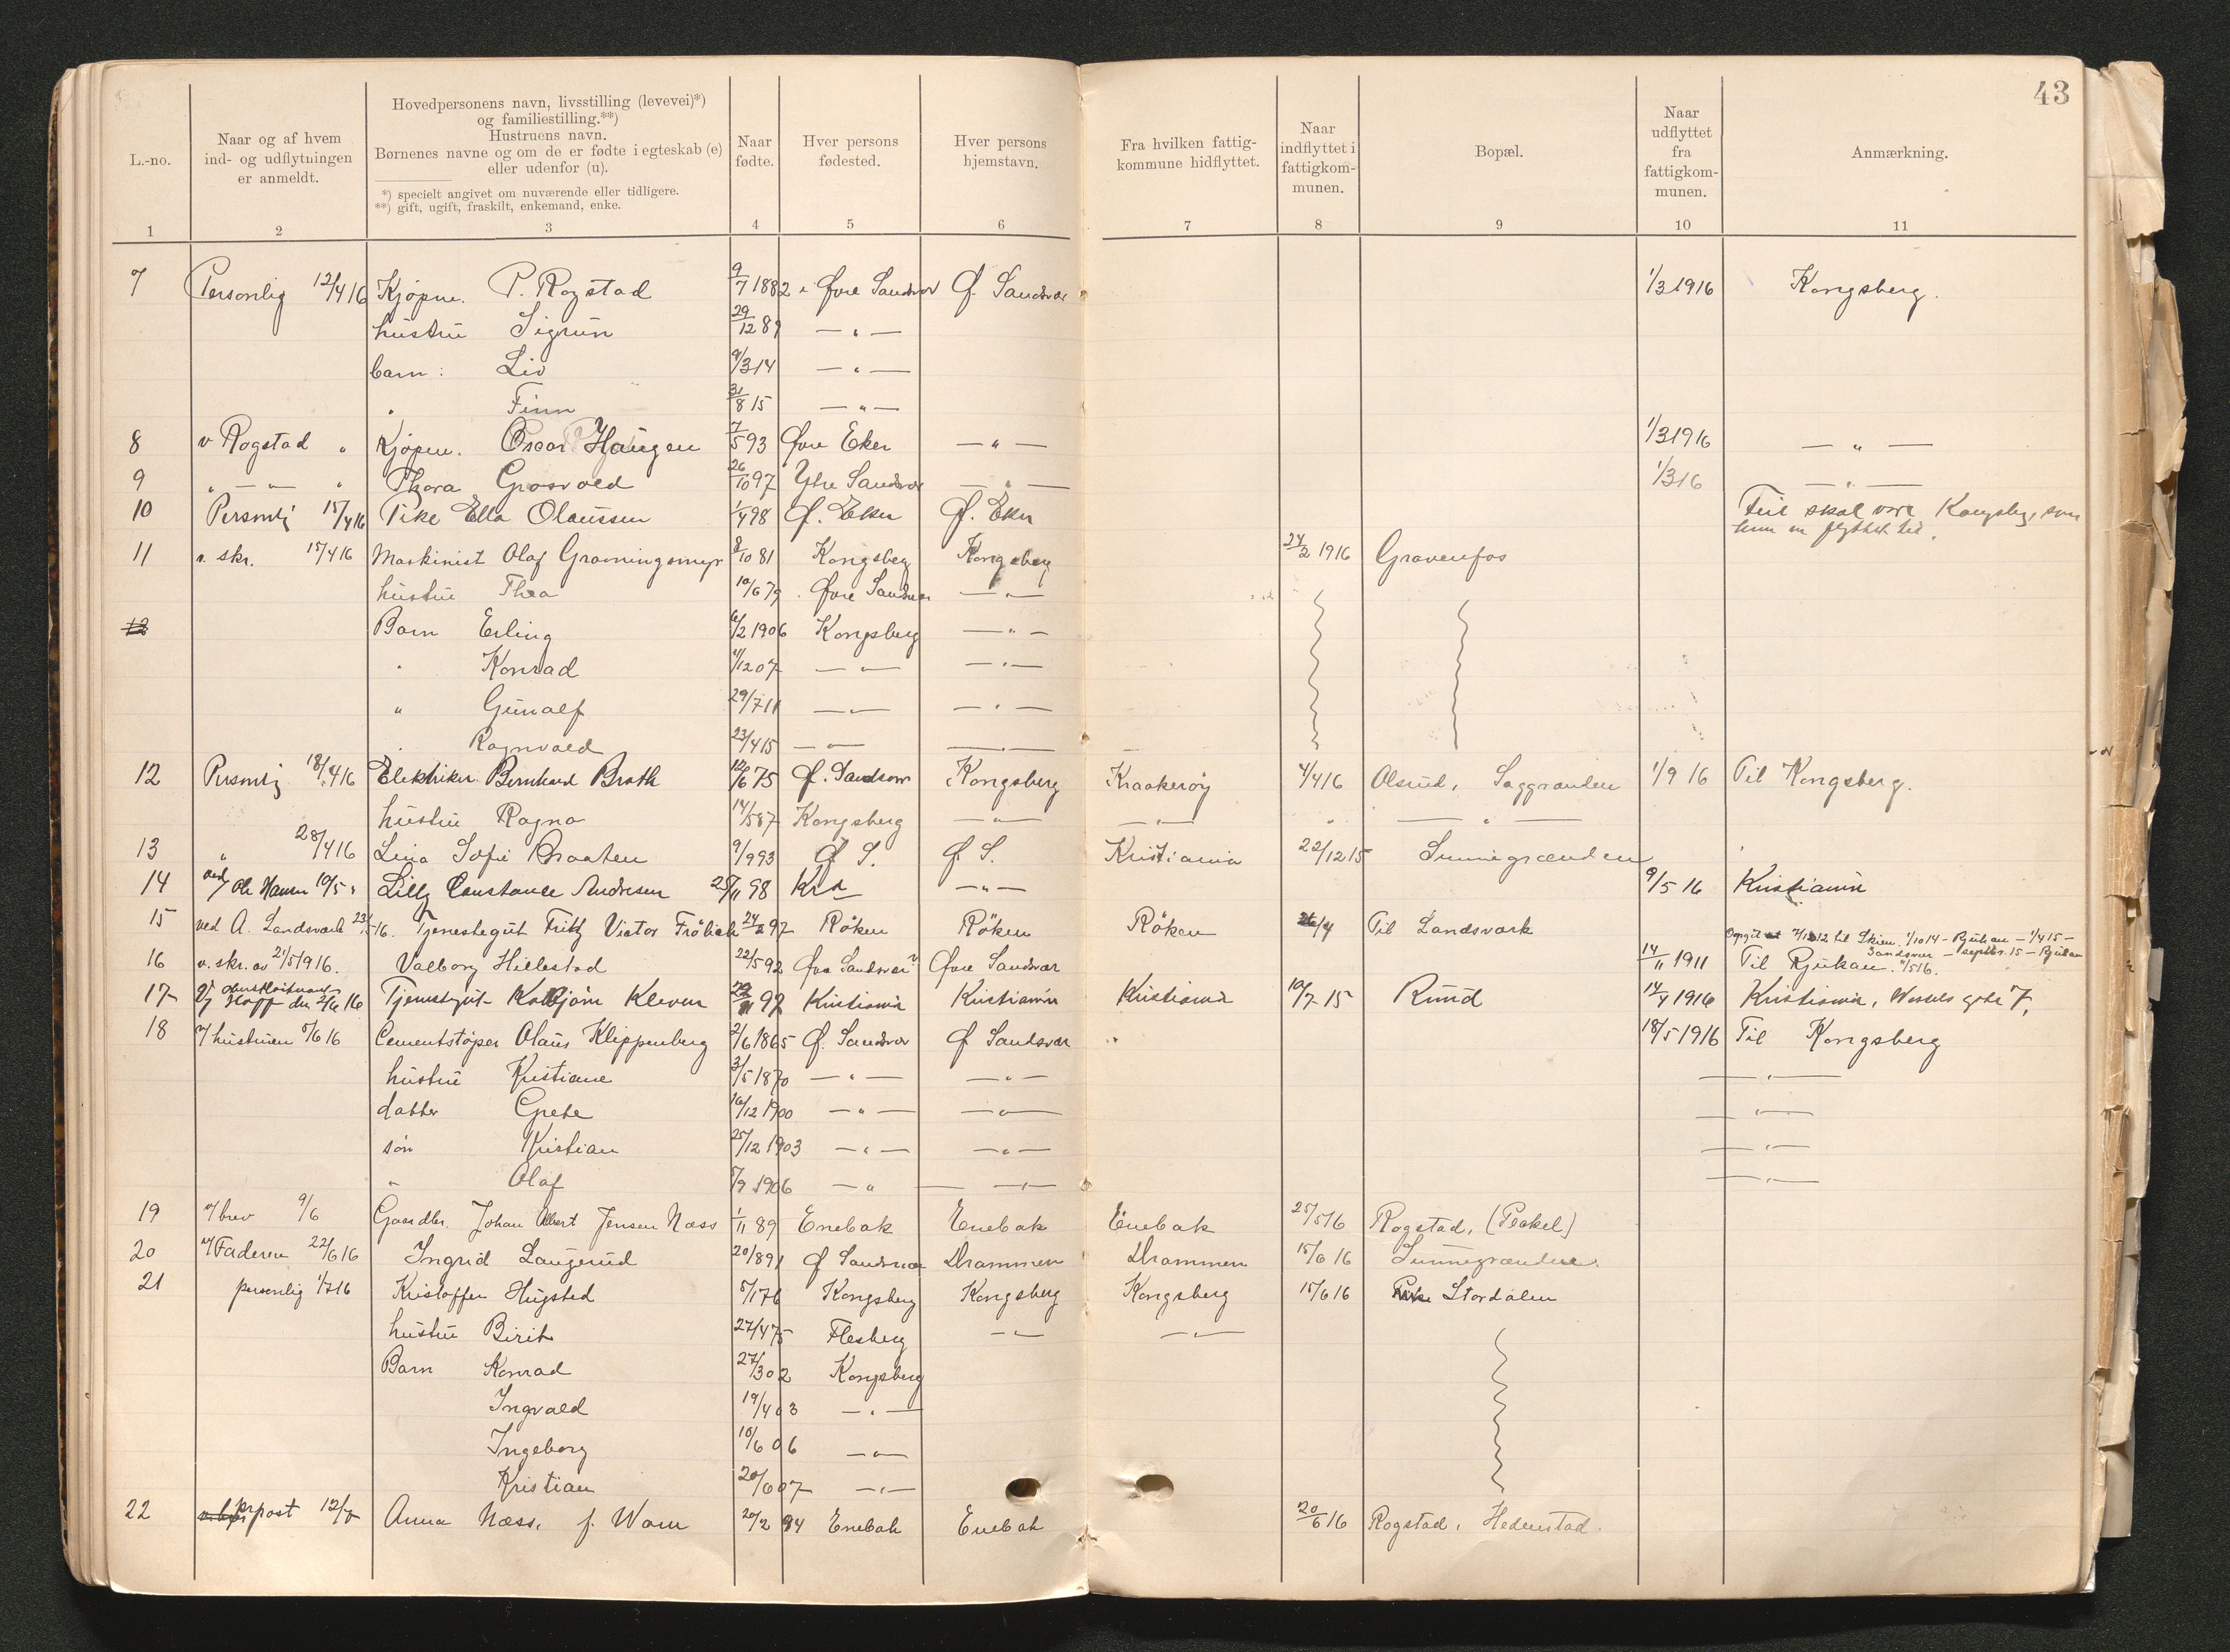 43
L.-no.
Naar og af hvem
ind- og udflytningen
er anmeldt.
Hovedpersonens navn, livsstilling (levevei)*)
og familiestilling.**)
Hustruens navn.
Børnenes navne og om de er fødte i egteskab (e)
eller udenfor (u).
*) specielt angivet om nuværende eller tidligere.
**) gift, ugift, fraskilt, enkemand, enke.
Naar
fødte.
Hver persons
fødested.
Hver persons
hjemstavn.
Fra hvilken fattig-
kommune hidflyttet.
Naar
indflyttet i
fattigkom-
munen.
Bopæl.
Naar
udflyttet
fra
fattigkom-
munen.
Anmærkning.
1 2 3 4 5 6 7 8 9 10 11
7 Personlig 12/4 16 Kjøpm. P. Rogstad 9/7 1882 Øvre Sandsvær Ø. Sandsvær 1/3 1916 Kongsberg.
hustru Sigrun 29/12 89 — " —
barn: Liv 9/3 14 — " —
" Finn 31/8 15 — " —
8 v Rogstad " Kjøpm. Oscar Haugen 7/5 93 Øvre Eker — " — 1/3 1916 — " —
9 " — " — " Thora Grosvold 26/10 97 Ytre Sandsvær — " — 1/3 16 — " —
10 Personlig 15/4 16 Pike Ella Olaussen 1/4 98 Ø. Eker Ø. Eker Feil skal være Kongsberg, som
hun er flyttet til.
11 v. skr. 15/4 16 Maskinist Olaf Gramingsmyr 8/10 81 Kongsberg Kongsberg 24/2 1916 Gravenfos
hustru Thea 10/6 79 Øvre Sandsvær — " —
12 Barn Erling 6/2 1906 Kongsberg — " —
" Konrad 4/12 07 — " — — " —
" Gunalf 29/7 11 — " — — " —
" Ragnvald 23/4 15 — " — — " —
12 Personlig 18/4 16 Elektriker Bernhard Brath 12/6 75 Ø. Sandsvær Kongsberg Kraakerøy 4/4 16 Olsrud, Saggrenden 1/9 16 Til Kongsberg.
hustru Ragna 14/5 87 Kongsberg — " — — " — " — " —
13 " 28/4 16 Lina Sofie Braaten 9/9 93 Ø S. Ø. S. Kristiania 22/12 15 Sunnegrænden
14 ved Ole Hansen 10/5 " Lilly Constance Andresen 25/11 98 Kra — " — 9/5 16 Kristiania
15 ved A. Landsverk 23/5 16. Tjenestegut Fritz Victor Frölich 24/2 97 Röken Röken Röken 26/4 Til Landsverk
16 v. skr. av 21/5 1916. Valborg Hillestad 22/5 92 Øvre Sandsvær Øvre Sandsvær 14/11 1911 Til Rjukan 4/5 16.
17 Hoff den 2/6 16 Tjenestgut Kolbjörn Kleven 97 Kristiania Kristiania Kristiania 10/7 15 Ruud 14/4 1916 Kristiania, Wessels gate 7,
18 v/ hustruen 5/6 16 Cementstøper Olaus Klippenberg 2/6 1865 Ø. Sandsvær Ø Sandsvær " 18/5 1916 Til Kongsberg
hustru Kristiane 3/5 1870 — " — — " — — " —
datter Grete 16/12 1900 — " — — " — — " —
sön Kristian 25/12 1903 — " — — " — — " —
" Olaf 5/9 1906 — " — — " — — " —
19 v/ brev 9/6 Gaardbr. Johan Albert Jensen Næss 1/11 89 Enebak Enebak Enebak 25/5 16 Rogstad, (Peckel)
20 v/ Faderen 22/6 16 Ingrid Laugerud 20/8 91 Ø Sandsvær Drammen Drammen 15/6 16 Sunnegrænden
21 personlig 1/7 16 Kristoffer Hugsted 5/1 76 Kongsberg Kongsberg Kongsberg 15/6 16 Stordalen
hustru Birit 27/4 75 Flesberg — " — — " —
Barn Konrad 27/3 02 Kongsberg
Ingvald 19/4 03 — " —
Ingeborg 10/6 06 — " —
Kristian 20/6 07 — " —
22 pr post 12/7 Anna Næss, f. Wam 20/2 94 Enebak Enebak 20/6 16 Rogstad, Hedenstad.